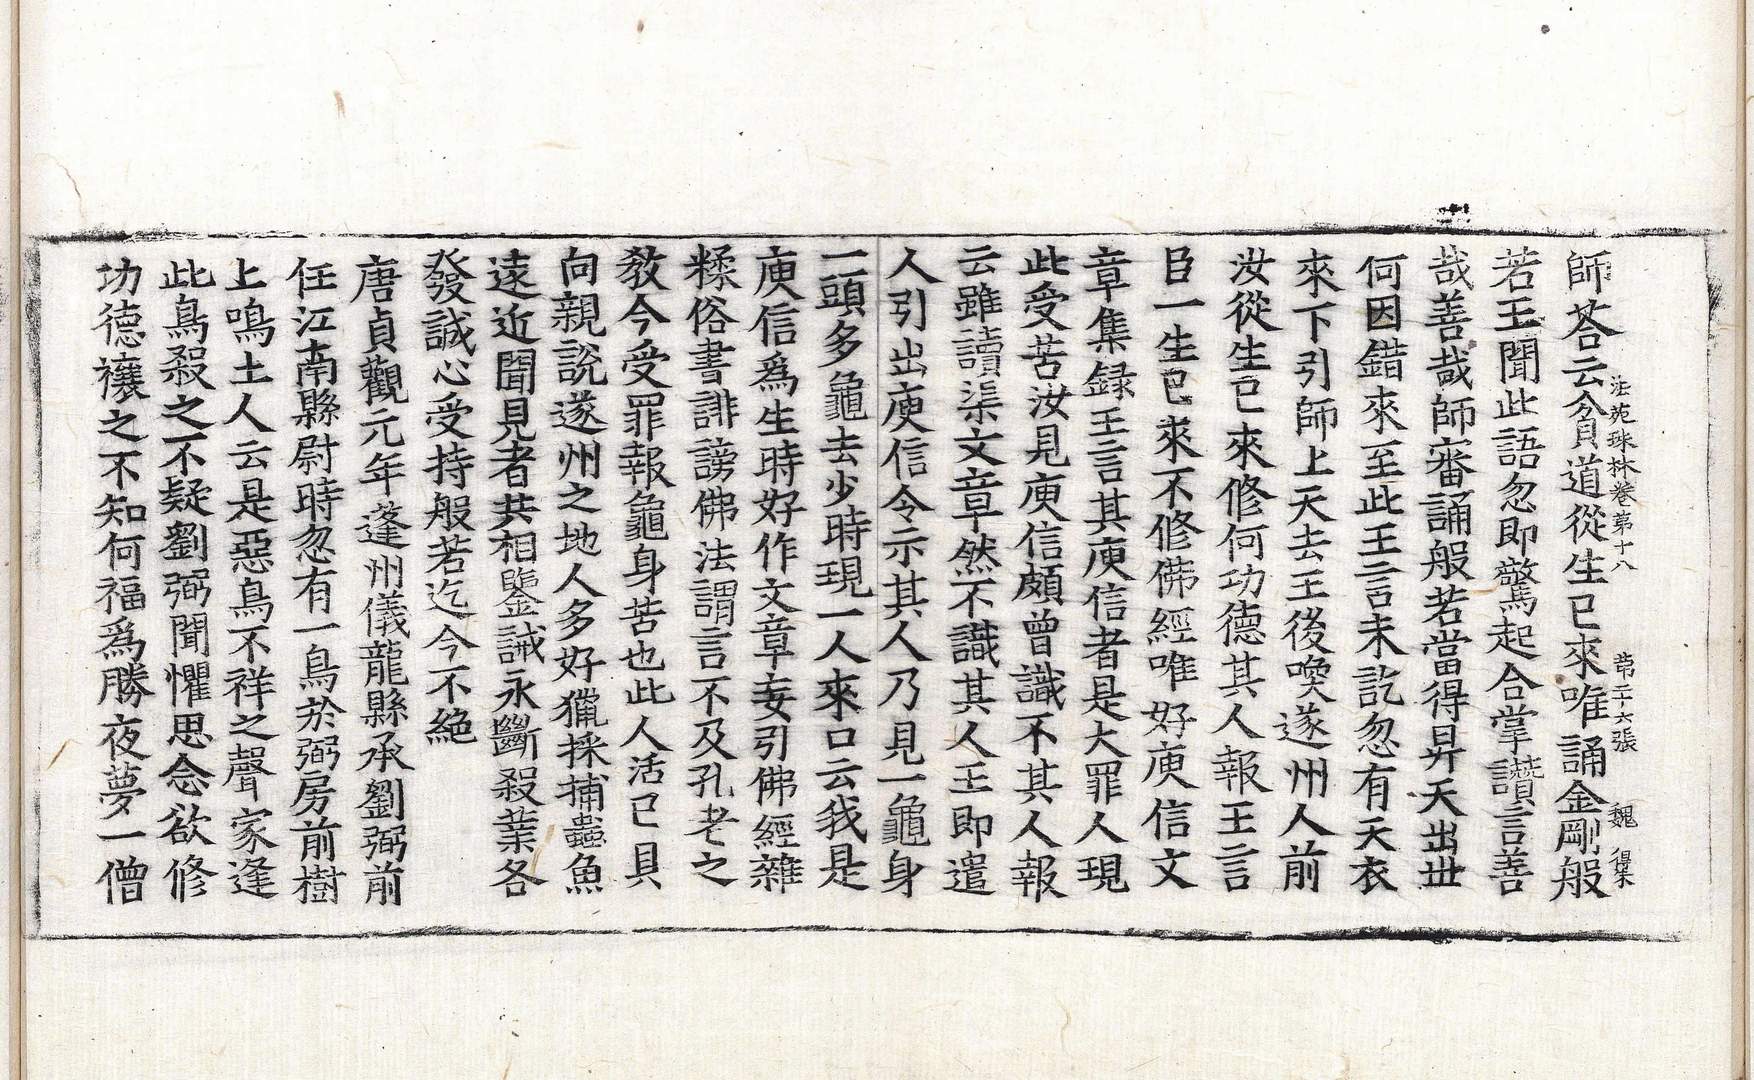 法苑珠林卷第十八 第二十六張 魏 得集
師荅云貧道從生已來唯誦金剛般
若王聞此語忽即驚起合掌讚言善
哉善哉師審誦般若當得昇天出世
何因錯來至此王言未訖忽有天衣
來下引師上天去王後喚遂州人前
汝從生已來修何功德其人報王言
臣一生已來不修佛經唯好庾信文
章集録王言其庾信者是大罪人現
此受苦汝見庾信頗曾識不其人報
云雖讀渠文章然不識其人王即遣
人引出庾信令示其人乃見一龜身
一頭多龜去少時現一人來口云我是
庾信爲生時好作文章妄引佛經雜
糅俗書誹謗佛法謂言不及孔老之
教今受罪報龜身苦也此人活已具
向親說遂州之地人多好獵採捕蟲魚
遠近聞見者共相鑒誡永斷殺業各
發誠心受持般若迄今不絶
唐貞觀元年蓬州儀龍縣承劉弼前
任江南縣尉時忽有一鳥於弼房前樹
上鳴土人云是惡鳥不祥之聲家逢
此鳥殺之不疑劉弼聞懼思念欲修
功德禳之不知何福爲勝夜夢一僧